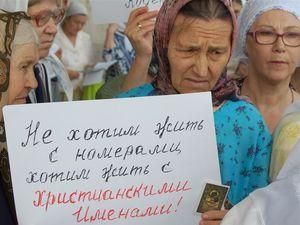 Не хотим жить
с номерами,
хотим жить с
Христианскими
Именами!